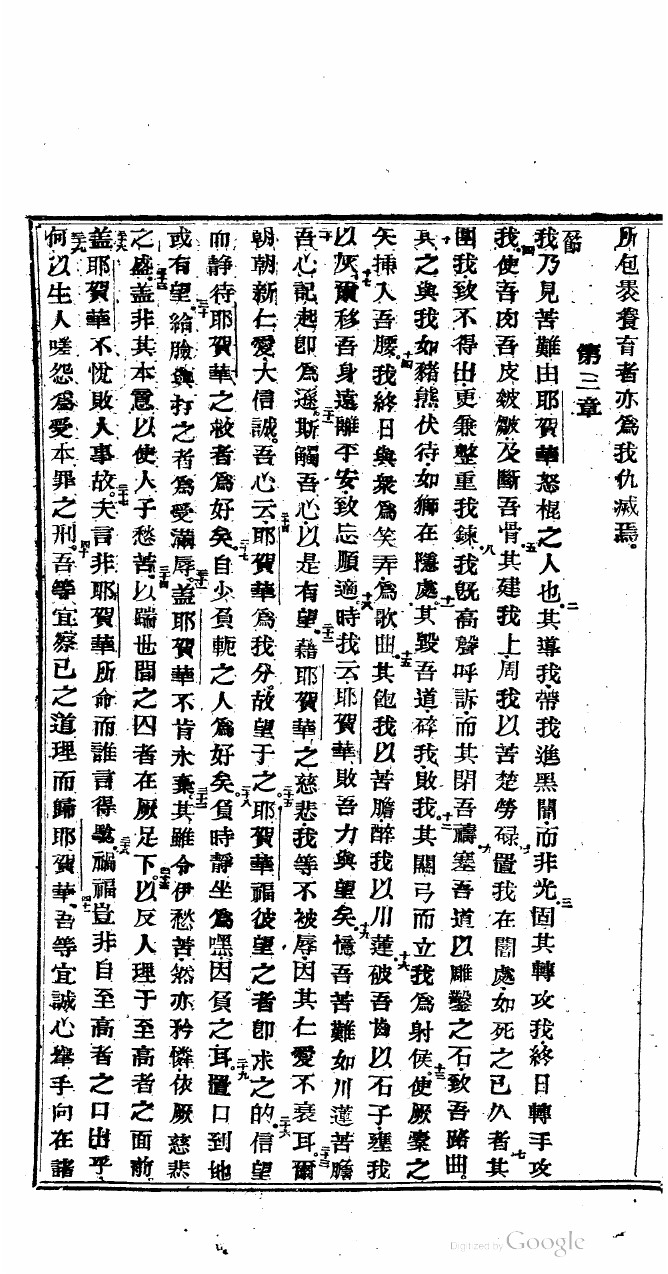 所包裹養育者亦爲我仇滅焉
第三章
一節 我乃見苦難由耶賀華怒棍之人也二其導我帶我進黑闇而非光三固其轉攻我終日轉手攻
我四使吾肉吾皮皴皺及斷吾骨五其建我上周我以苦楚勞碌六置我在闇處如死之已久者七其
圍我致不得出更兼整重我鍊八我旣高聲呼訴而其閉吾禱九塞吾道以雕鑿之石致吾路曲
十其之與我如豬熊伏待如獅在隱處十一其毀吾道碎我敗我十二其關弓而立我爲射侯十三使厥橐之
矢揷入吾腰十四我終日與衆爲笑弄爲歌曲十五其飽我以苦膽醉我以川蓮十六破吾齒以石子壅我
以灰十七爾移吾身遠離平安致忘順適時十八我云耶賀華敗吾力與望矣十九憶吾苦難如川蓮苦膽
二十吾心記起卽爲遜二十一斯觸吾心以是有望二十二藉耶賀華之慈悲我等不被辱因其仁愛不衰耳二十三爾
朝朝新仁愛大信誠二十四吾心云耶賀華爲我分故望于之二十五耶賀華福彼望之者卽求之的二十六信望
而靜待耶賀華之救者爲好矣二十七自少負軛之人爲好矣二十八負時靜坐爲嘿因負之耳二十九置口到地
或有望三十給臉與打之者爲受滿辱三十一蓋耶賀華不肯永棄三十二其雖令伊愁苦然亦矜憐依厥慈悲
之盛三十三蓋非其本意以使人子愁苦三十四以踹世間之囚者在厥足下三十五以反人理于至高者之面前
三十六蓋耶賀華不悅敗人事故三十七夫言非耶賀華所命而誰言得驗三十八禍福豈非自至高者之口出乎
三十九何以生人嗟怨爲受本罪之刑四十吾等宜察己之道理而歸耶賀華四十一吾等宜誠心舉手向在諸
Digitized by Google